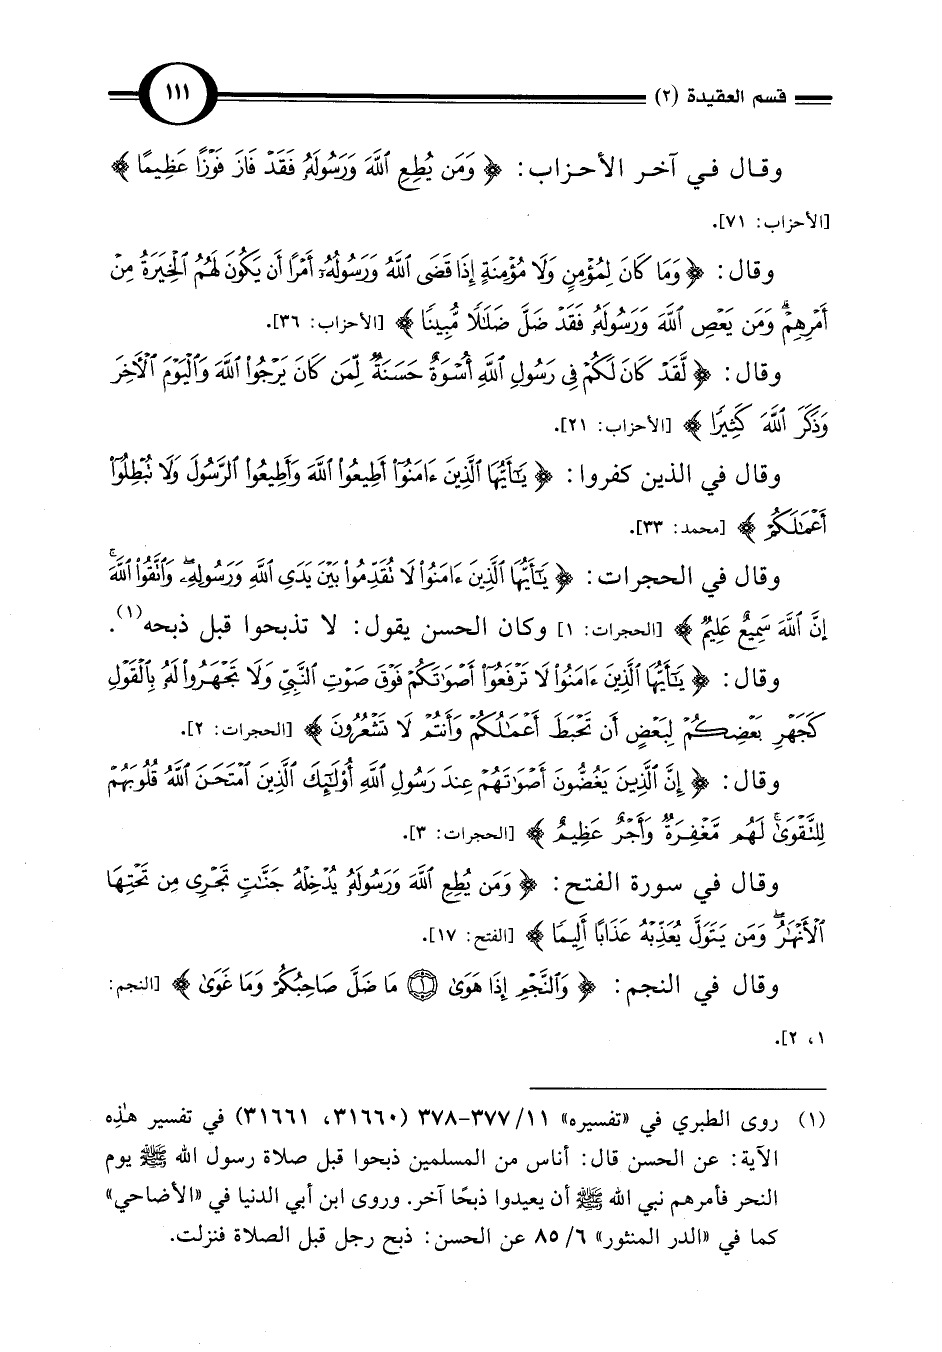 قسم العقيدة (٢)
١١١
وقال في آخر الأحزاب: ﴿ وَمَن يُطِعِ ٱللَّهَ وَرَسُولَهُۥ فَقَدْ فَازَ فَوْزًا عَظِيمًا ﴾
[الأحزاب: ٧١].
وقال: ﴿ وَمَا كَانَ لِمُؤْمِنٍ وَلَا مُؤْمِنَةٍ إِذَا قَضَى ٱللَّهُ وَرَسُولُهُۥٓ أَمْرًا أَن يَكُونَ لَهُمُ ٱلْخِيَرَةُ مِنْ
أَمْرِهِمْ ۗ وَمَن يَعْصِ ٱللَّهَ وَرَسُولَهُۥ فَقَدْ ضَلَّ ضَلَٰلًا مُّبِينًا ﴾ [الأحزاب: ٣٦].
وقال: ﴿ لَّقَدْ كَانَ لَكُمْ فِى رَسُولِ ٱللَّهِ أُسْوَةٌ حَسَنَةٌ لِّمَن كَانَ يَرْجُوا۟ ٱللَّهَ وَٱلْيَوْمَ ٱلْـَٔاخِرَ
وَذَكَرَ ٱللَّهَ كَثِيرًا ﴾ [الأحزاب: ٢١].
وقال في الذين كفروا: ﴿ يَٰٓأَيُّهَا ٱلَّذِينَ ءَامَنُوٓا۟ أَطِيعُوا۟ ٱللَّهَ وَأَطِيعُوا۟ ٱلرَّسُولَ وَلَا تُبْطِلُوٓا۟
أَعْمَٰلَكُمْ ﴾ [محمد: ٣٣].
وقال في الحجرات: ﴿ يَٰٓأَيُّهَا ٱلَّذِينَ ءَامَنُوا۟ لَا تُقَدِّمُوا۟ بَيْنَ يَدَىِ ٱللَّهِ وَرَسُولِهِۦ ۖ وَٱتَّقُوا۟ ٱللَّهَ ۚ
إِنَّ ٱللَّهَ سَمِيعٌ عَلِيمٌ ﴾ [الحجرات: ١] وكان الحسن يقول: لا تذبحوا قبل ذبحه(١).
وقال: ﴿ يَٰٓأَيُّهَا ٱلَّذِينَ ءَامَنُوا۟ لَا تَرْفَعُوٓا۟ أَصْوَٰتَكُمْ فَوْقَ صَوْتِ ٱلنَّبِىِّ وَلَا تَجْهَرُوا۟ لَهُۥ بِٱلْقَوْلِ
كَجَهْرِ بَعْضِكُمْ لِبَعْضٍ أَن تَحْبَطَ أَعْمَٰلُكُمْ وَأَنتُمْ لَا تَشْعُرُونَ ﴾ [الحجرات: ٢].
وقال: ﴿ إِنَّ ٱلَّذِينَ يَغُضُّونَ أَصْوَٰتَهُمْ عِندَ رَسُولِ ٱللَّهِ أُو۟لَٰٓئِكَ ٱلَّذِينَ ٱمْتَحَنَ ٱللَّهُ قُلُوبَهُمْ
لِلتَّقْوَىٰ ۚ لَهُم مَّغْفِرَةٌ وَأَجْرٌ عَظِيمٌ ﴾ [الحجرات: ٣].
وقال في سورة الفتح: ﴿ وَمَن يُطِعِ ٱللَّهَ وَرَسُولَهُۥ يُدْخِلْهُ جَنَّٰتٍ تَجْرِى مِن تَحْتِهَا
ٱلْأَنْهَٰرُ ۖ وَمَن يَتَوَلَّ يُعَذِّبْهُ عَذَابًا أَلِيمًا ﴾ [الفتح: ١٧].
وقال في النجم: ﴿ وَٱلنَّجْمِ إِذَا هَوَىٰ ۝١ مَا ضَلَّ صَاحِبُكُمْ وَمَا غَوَىٰ ﴾ [النجم:
١، ٢].
(١) روى الطبري في «تفسيره» ١١/ ٣٧٧-٣٧٨ (٣١٦٦٠، ٣١٦٦١) في تفسير هٰذِه
الآية: عن الحسن قال: أناس من المسلمين ذبحوا قبل صلاة رسول الله ﷺ يوم
النحر فأمرهم نبي الله ﷺ أن يعيدوا ذبحًا آخر. وروى ابن أبي الدنيا في «الأضاحي»
كما في «الدر المنثور» ٦/ ٨٥ عن الحسن: ذبح رجل قبل الصلاة فنزلت.